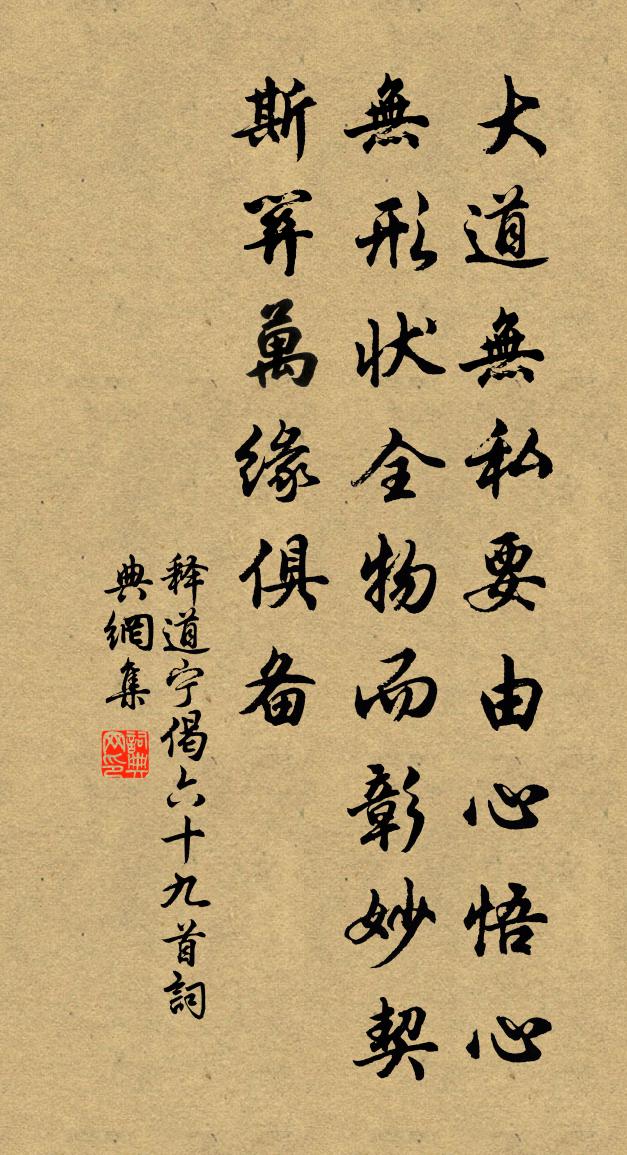 大道無私要由心悟心
無形状全物而彰妙契
斯萬緣俱备
释道宁偈六十九首詞
典網集
詞典
网印